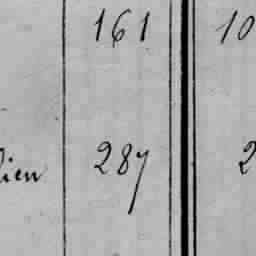 161 10
lien 287 2